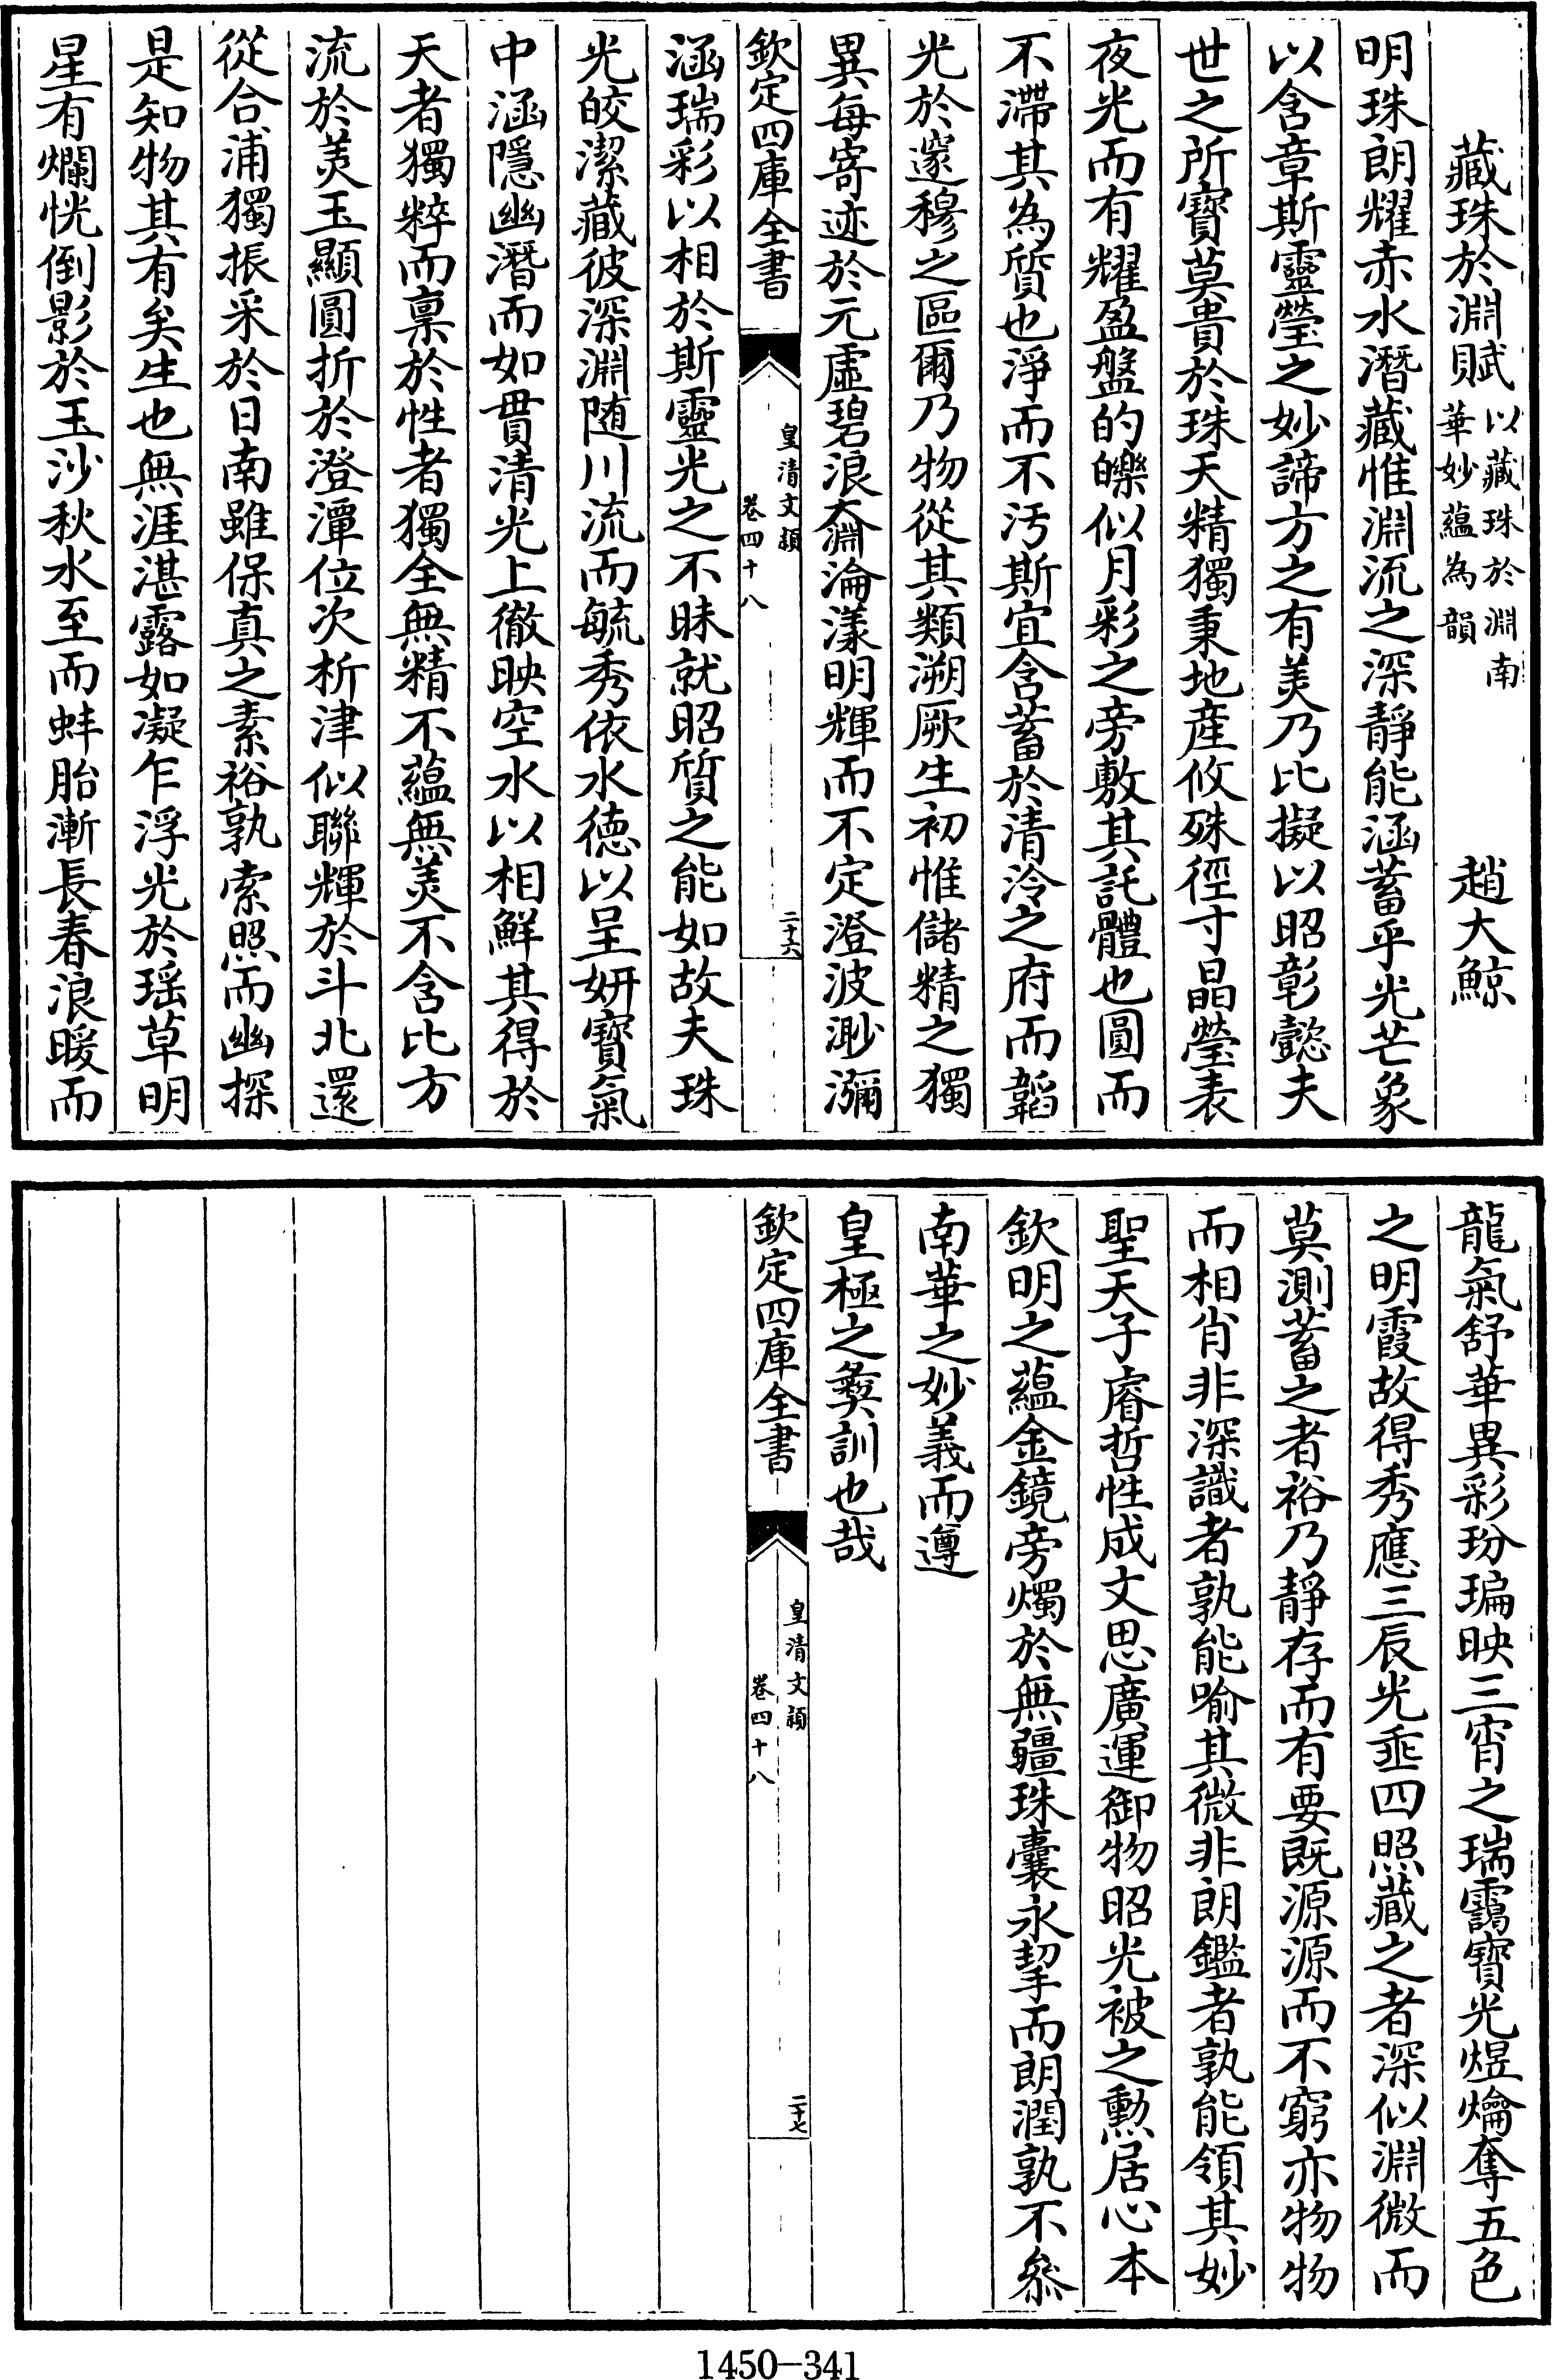 藏珠於淵賦以藏珠於淵南華妙蘊為韻 趙大鯨
明珠朗耀赤水潛藏惟淵流之深靜能涵蓄乎光芒象
以含章斯靈瑩之妙諦方之有美乃比擬以昭彰懿夫
世之所寳莫貴於珠天精獨秉地產攸殊徑寸晶瑩表
夜光而有耀盈盤的皪似月彩之旁敷其託體也圓而
不滯其為質也淨而不汚斯宜含蓄於清泠之府而韜
光於邃穆之區爾乃物從其類溯厥生初惟儲精之獨
異每寄迹於元虛碧浪奫淪漾明輝而不定澄波渺瀰
欽定四庫全書
皇清文穎
卷四十八
二十六
涵瑞彩以相於斯靈光之不昧就昭質之能如故夫珠
光皎潔藏彼深淵随川流而毓秀依水德以呈妍寳氣
中涵隱幽潛而如貫清光上徹映空水以相鮮其得於
天者獨粹而稟於性者獨全無精不蘊無美不含比方
流於美玉顯圓折於澄潭位次析津似聯輝於斗北還
從合浦獨振采於日南雖保真之素裕孰索照而幽探
是知物其有矣生也無涯湛露如凝乍浮光於瑶草明
星有爛恍倒影於玉沙秋水至而蚌胎漸長春浪暖而
龍氣舒華異彩玢㻞映三宵之瑞靄寳光煜爚奪五色
之明霞故得秀應三辰光垂四照藏之者深似淵微而
莫測蓄之者裕乃靜存而有要既源源而不窮亦物物
而相肖非深識者孰能喻其微非朗鑑者孰能領其妙
聖天子睿哲性成文思廣運御物昭光被之勲居心本
欽明之蘊金鏡旁燭於無疆珠囊永挈而朗潤孰不叅
南華之妙義而遵
皇極之彝訓也哉
欽定四庫全書
皇清文穎
卷四十八
二十七
1450-341